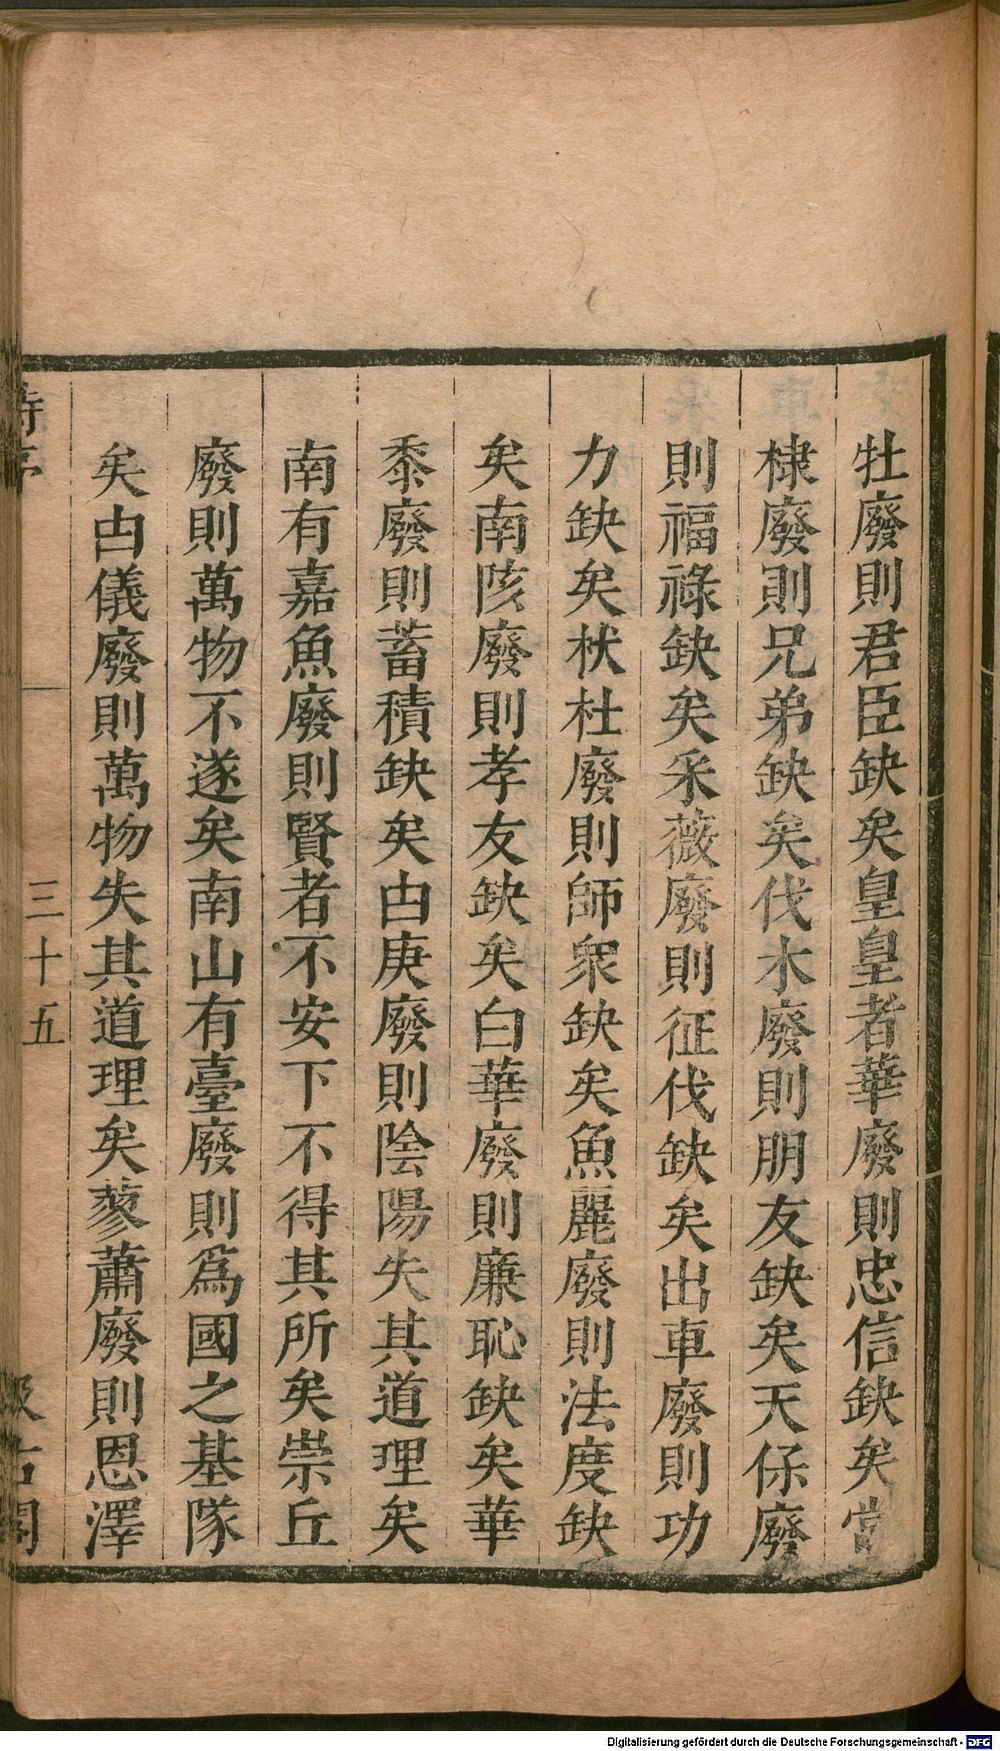 牡廢則君臣缺矣皇皇者華廢則忠信缺矣常
棣廢則兄弟缺矣伐木廢則朋友缺矣天保廢
則福祿缺矣釆薇廢則征伐缺矣出車廢則功
力缺矣杕杜廢則師衆缺矣魚麗廢則法度缺
矣南陔廢則孝友缺矣白華廢則廉恥缺矣華
黍廢則蓄積缺矣由庚廢則陰陽失其道理矣
南有嘉魚廢則賢者不安下不得其所矣崇丘
廢則萬物不遂矣南山有臺廢則爲國之基隊
矣由儀廢則萬物失其道理矣蓼蕭廢則恩澤
詩序 三十五 汲古閣
Digitalisierung gefördert durch die Deutsche Forschungsgemeinschaft - DFG